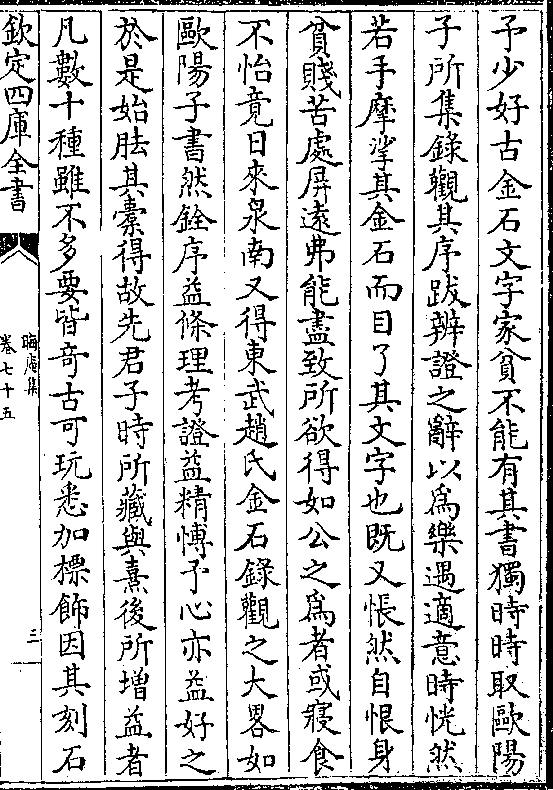 予少好古金石文字家貧不能有其書獨時時取歐陽
子所集錄觀其序跋辨證之辭以為樂遇適意時恍然
若手摩挲其金石而目了其文字也既又悵然自恨身
貧賤苦處屏遠弗能盡致所欲得如公之為者或寢食
不怡竟日來泉南又得東武趙氏金石錄觀之大畧如
歐陽子書然銓序益條理考證益精博予心亦益好之
於是始胠其橐得故先君子時所藏與熹後所增益者
凡數十種雖不多要皆奇古可玩悉加標飾因其刻石
欽定四庫全書
晦庵集
卷七十五
三